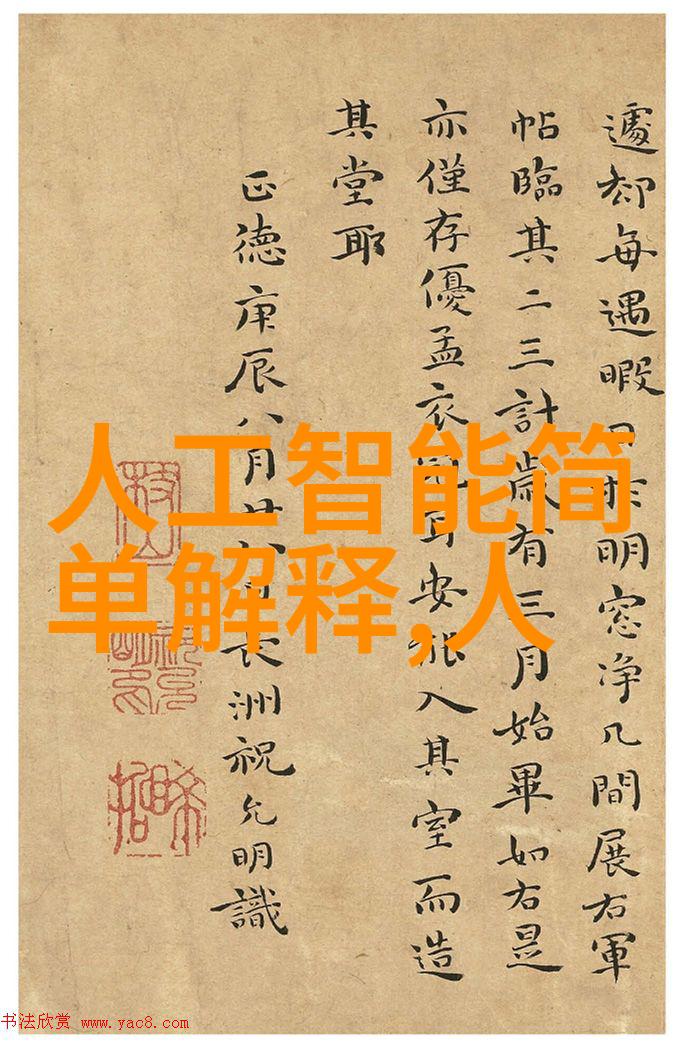 遽却每遇暇日於明窓净几間展右軍
帖臨其二三計歲有三月始畢如右是
亦僅存優孟衣冠耳安能入其室而造
其堂耶
正德庚辰八月廿日長洲祝允明識
枝山
人工智能简
单解释,人
书法欣赏 www.yac8.com